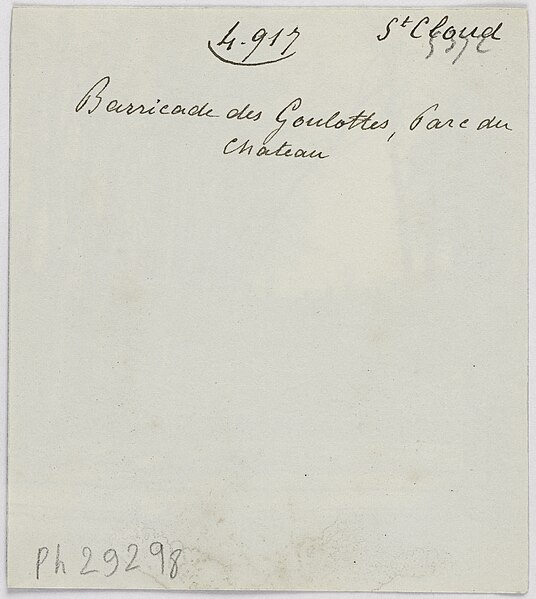 4.917
St Cloud
Barricade des Goulottes, Parc du
Chateau
Ph 29298